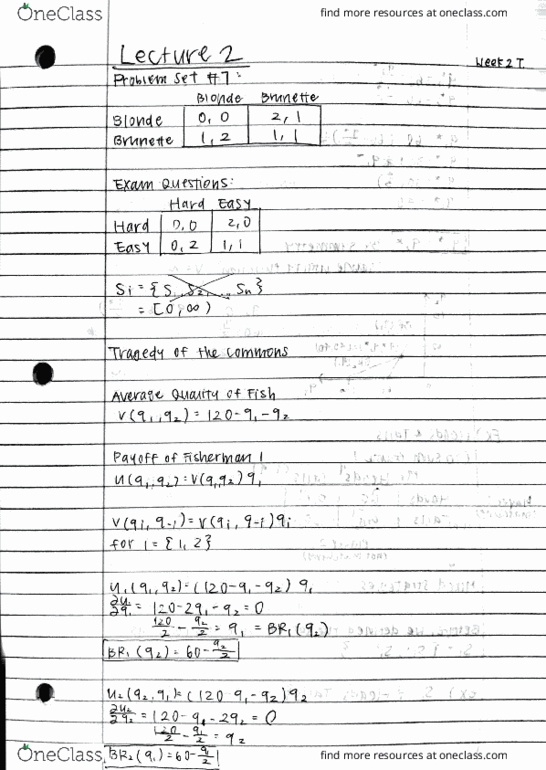 OneClass find more resources at oneclass.com
Lecture 2
Week 2 T
Problem Set #7:
Blonde Brunette
Blonde 0, 0 2, 1
Brunette 1, 2 1, 1
Exam Questions:
Hard Easy
Hard 0,0 2,0
Easy 0, 2 1, 1
Si = {S1, S2, ... Sn}
= [0, ∞)
Tragedy of the commons
Average Quality of Fish
V(q1, q2) = 120 - q1 - q2
Payoff of Fisherman 1
u(q1, q2) = V(q1 q2) q1
V(qi, q-i) = V(qi, q-i) qi
for i = {1, 2}
u1(q1, q2) = (120 - q1 - q2) q1
∂u1/∂q1 = 120 - 2q1 - q2 = 0
120/2 - q2/2 = q1 = BR1(q2)
BR1(q2) = 60 - q2/2
u2(q2, q1) = (120 - q1 - q2) q2
∂u2/∂q2 = 120 - q1 - 2q2 = 0
120/2 - q1/2 = q2
BR2(q1) = 60 - q1/2
OneClass find more resources at oneclass.com